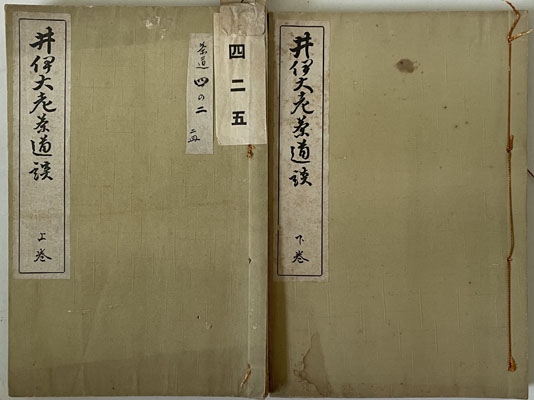 井伊大老茶道談
上巻
茶道 四の二
四二五
井伊大老茶道談
下巻